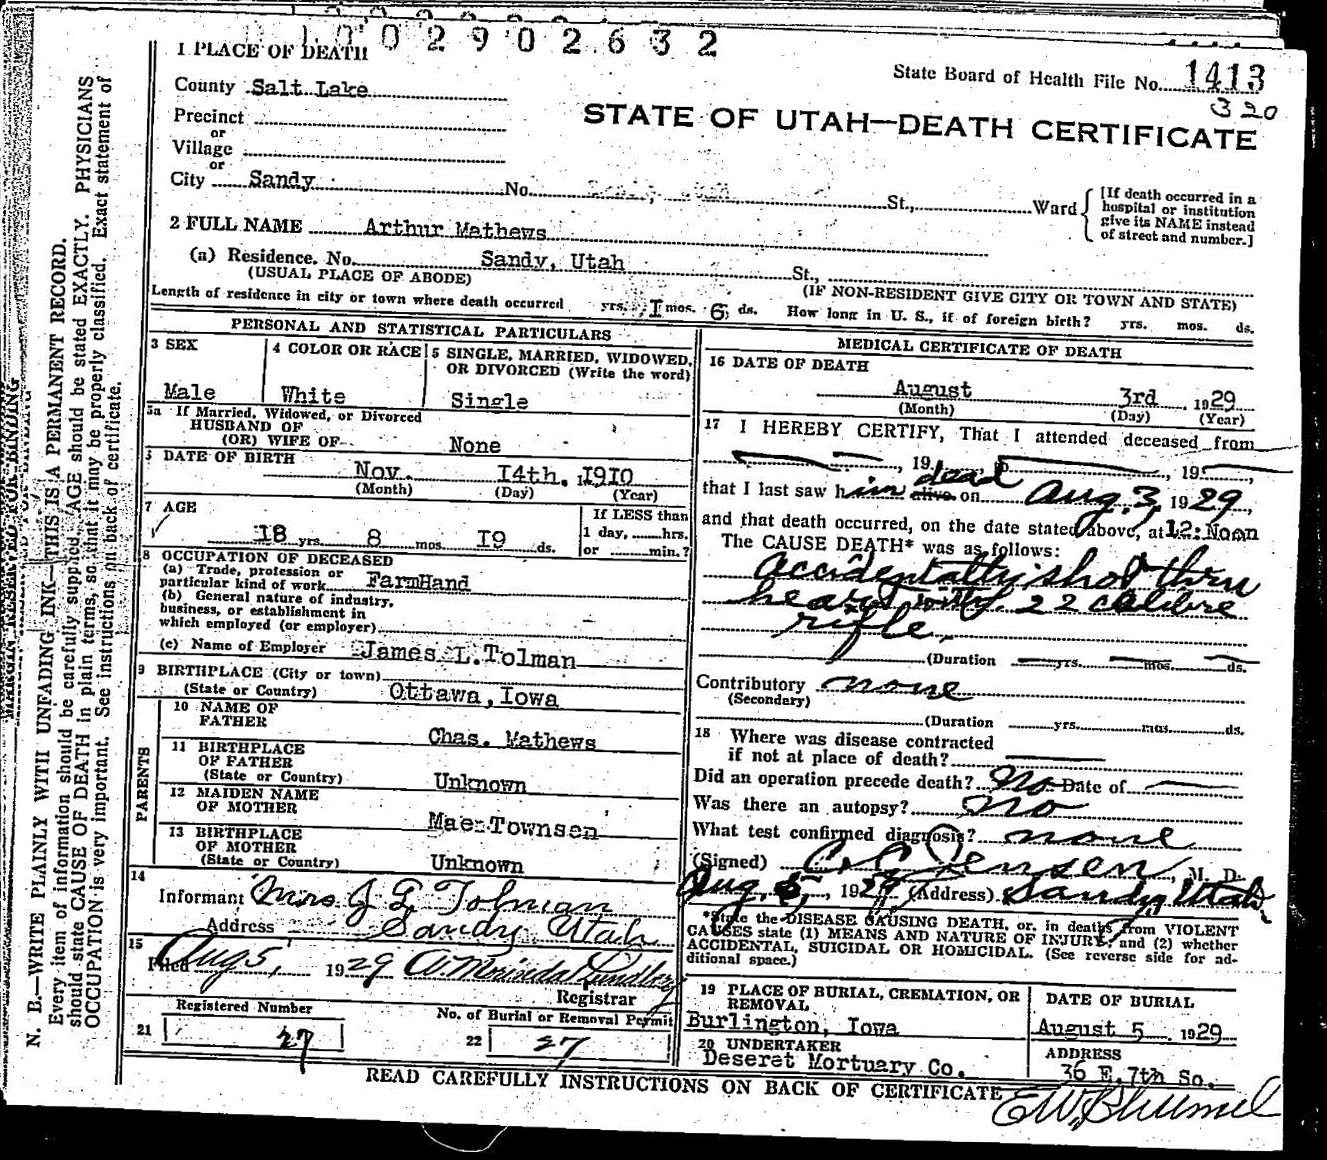 1 0 0 2 9 0 2 6 3 2
1 PLACE OF DEATH
State Board of Health File No. 1413
320
County Salt Lake
STATE OF UTAH—DEATH CERTIFICATE
Precinct
or
Village
or
City Sandy No. St., Ward
[If death occurred in a
hospital or institution
give its NAME instead
of street and number.]
2 FULL NAME Arthur Mathews
(a) Residence. No. Sandy, Utah St.,
(USUAL PLACE OF ABODE) (IF NON-RESIDENT GIVE CITY OR TOWN AND STATE)
Length of residence in city or town where death occurred yrs. I mos. 6 ds. How long in U. S., if of foreign birth? yrs. mos. ds.
PERSONAL AND STATISTICAL PARTICULARS
3 SEX
Male
4 COLOR OR RACE
White
5 SINGLE, MARRIED, WIDOWED,
OR DIVORCED (Write the word)
Single
5a If Married, Widowed, or Divorced
HUSBAND OF
(OR) WIFE OF None
6 DATE OF BIRTH
Nov. I4th. 1910
(Month) (Day) (Year)
7 AGE
I8 yrs. 8 mos. I9 ds.
If LESS than
1 day, hrs.
or min.?
8 OCCUPATION OF DECEASED
(a) Trade, profession or
particular kind of work FarmHand
(b) General nature of industry,
business, or establishment in
which employed (or employer)
(c) Name of Employer James L. Tolman
9 BIRTHPLACE (City or town)
(State or Country) Ottawa, Iowa
PARENTS
10 NAME OF
FATHER Chas. Mathews
11 BIRTHPLACE
OF FATHER
(State or Country) Unknown
12 MAIDEN NAME
OF MOTHER Mae Townsen
13 BIRTHPLACE
OF MOTHER
(State or Country) Unknown
14
Informant Mrs J L Tolman
Address Sandy Utah
15
Filed Aug 5, 1929
Registrar
Registered Number
21 27
No. of Burial or Removal Permit
22 27
MEDICAL CERTIFICATE OF DEATH
16 DATE OF DEATH
August 3rd 1929
(Month) (Day) (Year)
17 I HEREBY CERTIFY, That I attended deceased from
, 19 to , 19
dead
that I last saw him alive on Aug. 3, 1929,
and that death occurred, on the date stated above, at 12: Noon
The CAUSE DEATH* was as follows:
Accidentally shot thru
heart with 22 calibre
rifle.
(Duration yrs. mos. ds.
Contributory none
(Secondary)
(Duration yrs. mos. ds.
18 Where was disease contracted
if not at place of death?
Did an operation precede death? No Date of
Was there an autopsy? No
What test confirmed diagnosis? none
(Signed) C. C. Jensen, M. D.
Aug. 5, 1929 (Address) Sandy, Utah.
*State the DISEASE CAUSING DEATH, or, in deaths from VIOLENT
CAUSES state (1) MEANS AND NATURE OF INJURY; and (2) whether
ACCIDENTAL, SUICIDAL OR HOMICIDAL. (See reverse side for ad-
ditional space.)
19 PLACE OF BURIAL, CREMATION, OR
REMOVAL
Burlington, Iowa
DATE OF BURIAL
August 5 1929
20 UNDERTAKER
Deseret Mortuary Co.
ADDRESS
36 E. 7th So.
READ CAREFULLY INSTRUCTIONS ON BACK OF CERTIFICATE
MARGIN RESERVED FOR BINDING
N. B.—WRITE PLAINLY WITH UNFADING INK—THIS IS A PERMANENT RECORD.
Every item of information should be carefully supplied. AGE should be stated EXACTLY. PHYSICIANS
should state CAUSE OF DEATH in plain terms, so that it may be properly classified. Exact statement of
OCCUPATION is very important. See instructions on back of certificate.